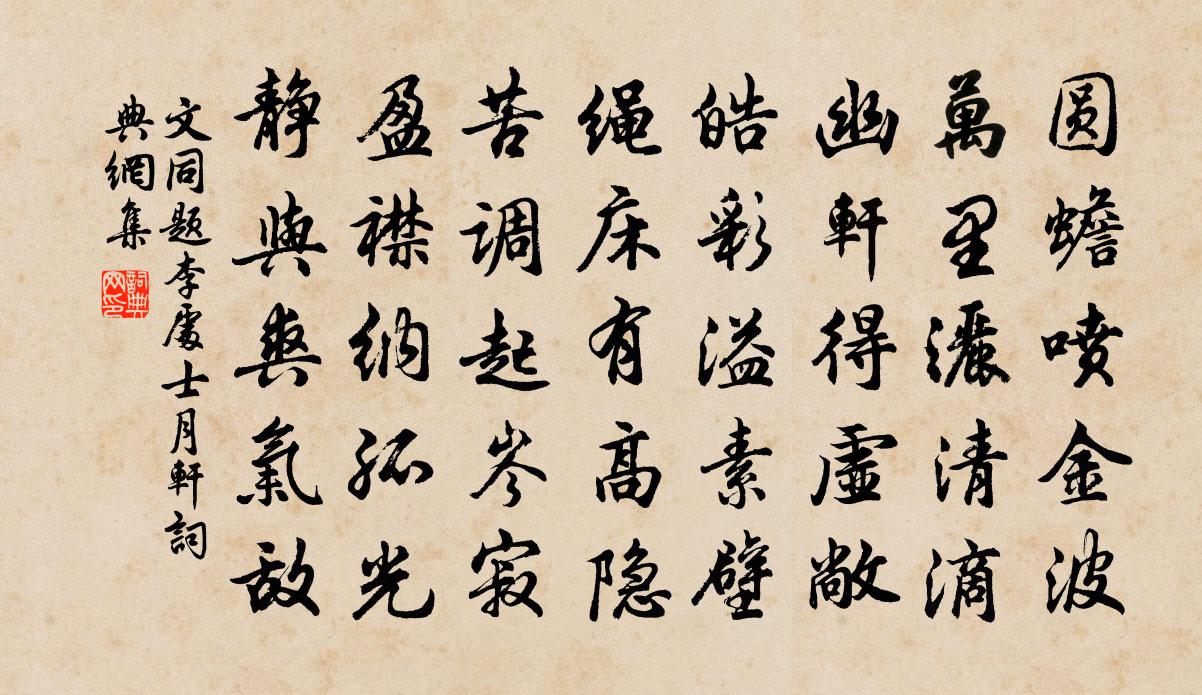 圆蟾喷金波
萬里灑清滴
幽軒得虛敞
皓彩溢素壁
绳床有高隐
苦调起岑寂
盈襟纳孤光
静與爽氣敌
文同题李處士月軒詞
典網集
詞典网印